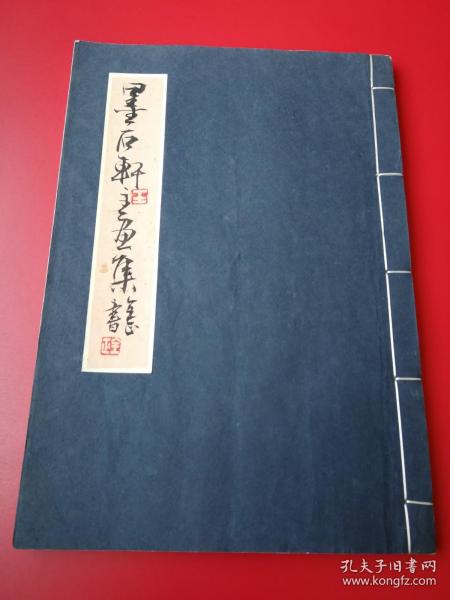 墨石軒主画集
書
孔夫子旧书网
www.kongfz.com